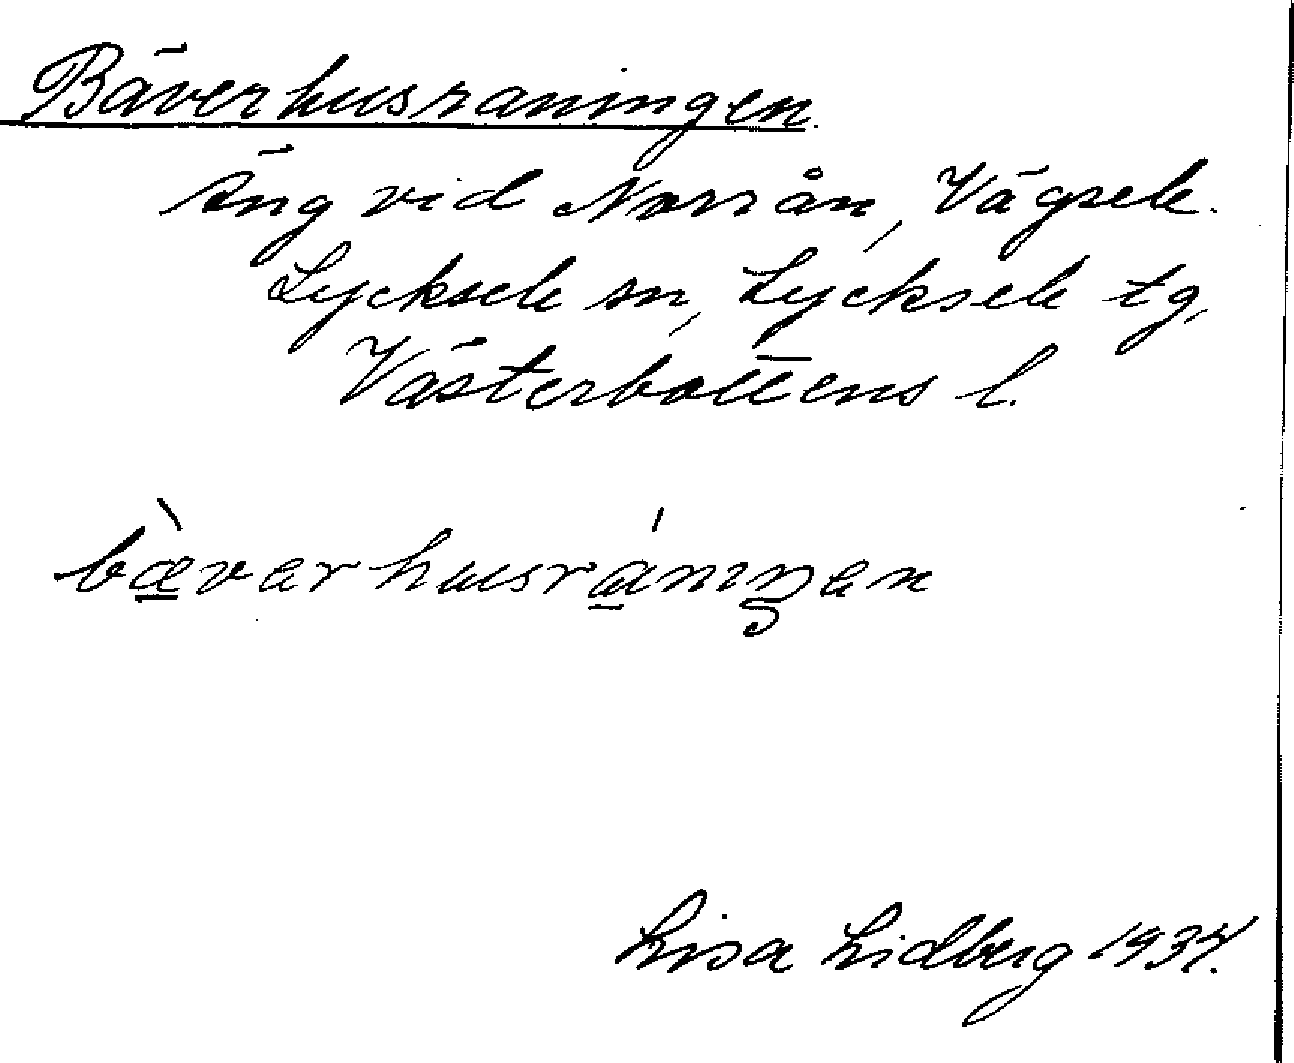 Bäverhusraningen.
Äng vid Norrån, Vägsele.
Lycksele sn, Lycksele tg,
Västerbottens l.
bæ̀varhusrániŋan
Lisa Lidberg